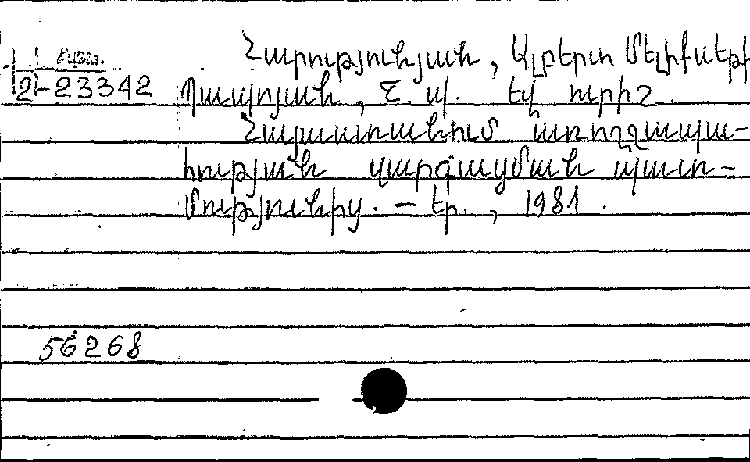 2-23342
Հարությունյան, Ալբերտ Մելիքսեթի
Պապոյան, եվ ուրիշ
Հայաստանում առողջապա-
հության զարգացման պատ-
մությունից. – Եր., 1981.
56268